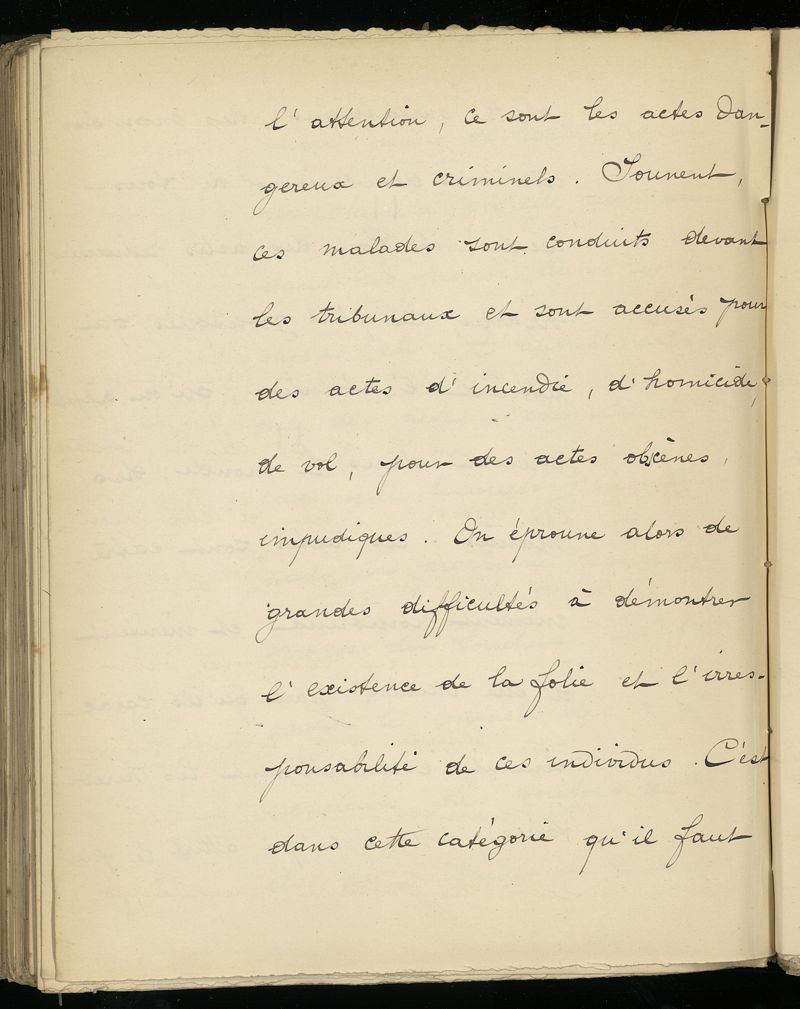 l'attention, ce sont les actes dan-
gereux et criminels. Souvent,
ces malades sont conduits devant
les tribunaux et sont accusés pour
des actes d'incendie, d'homicide,
de vol, pour des actes obscènes,
impudiques. On éprouve alors de
grandes difficultés à démontrer
l'existence de la folie et l'irres-
ponsabilité de ces individus. C'est
dans cette catégorie qu'il faut